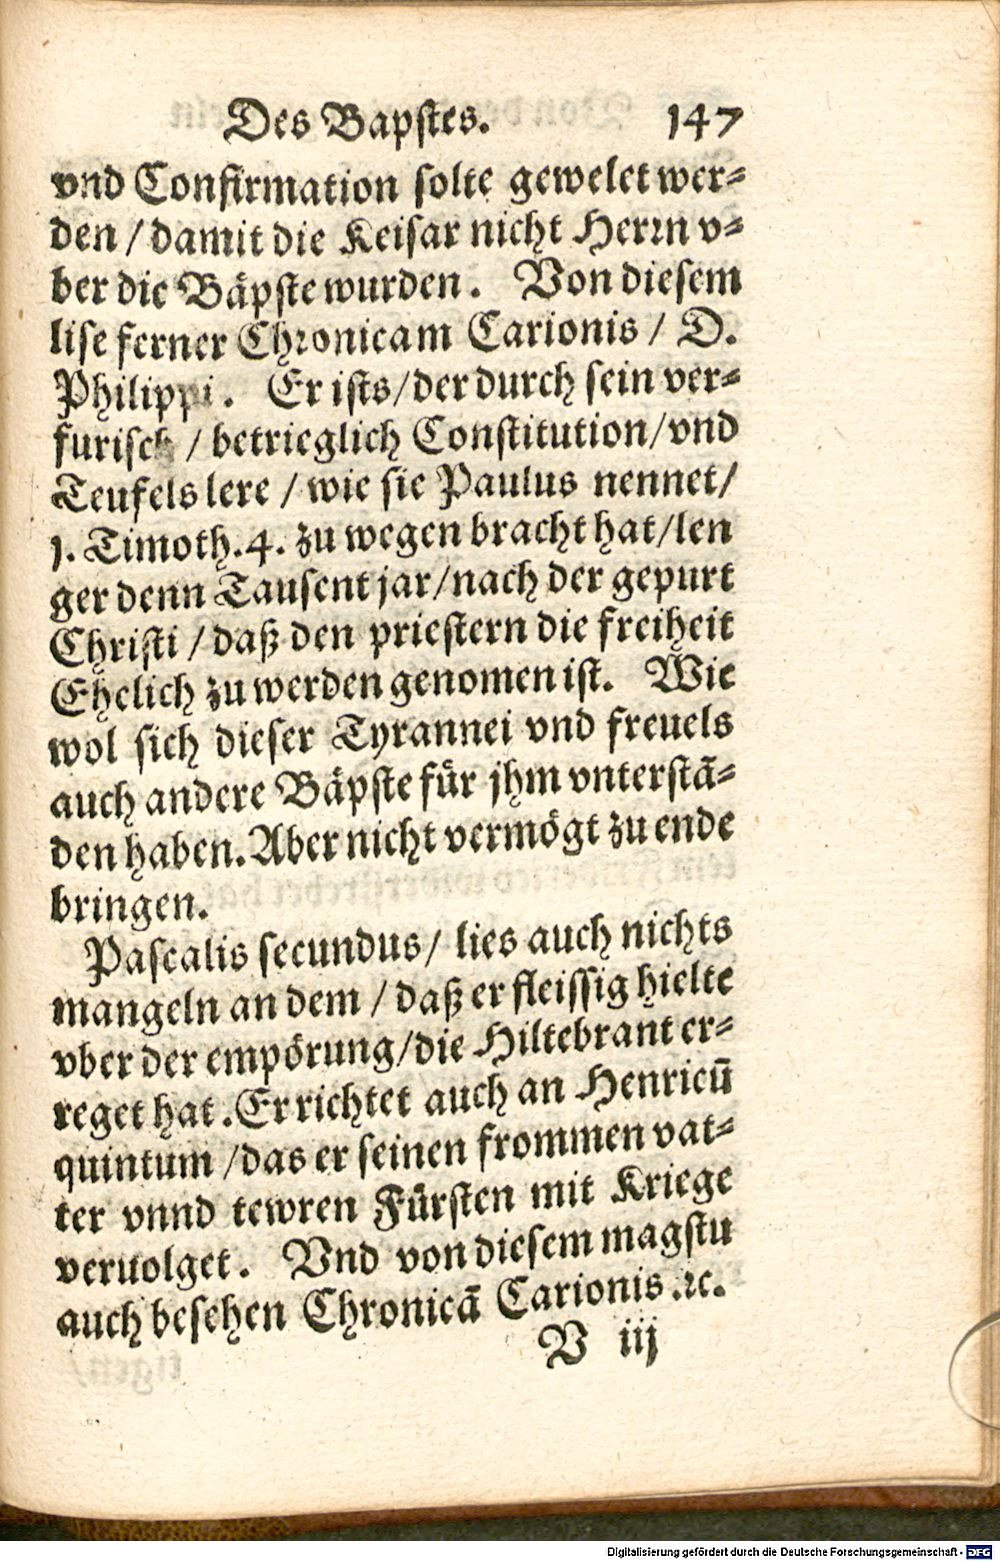 Des Bapstes. 147
vnd Confirmation solte gewelet wer⸗
den / damit die Keisar nicht Herrn v⸗
ber die Bäpste wurden. Von diesem
lise ferner Chronicam Carionis / D.
Philippi. Er ists / der durch sein ver⸗
furisch / betrieglich Constitution / vnd
Teufels lere / wie sie Paulus nennet /
1. Timoth. 4. zu wegen bracht hat / len
ger denn Tausent jar / nach der gepurt
Christi / daß den priestern die freiheit
Ehelich zu werden genomen ist. Wie
wol sich dieser Tyrannei vnd freuels
auch andere Bäpste für jhm vnterstā⸗
den haben. Aber nicht vermögt zu ende
bringen.
Pascalis secundus / lies auch nichts
mangeln an dem / daß er fleissig hielte
vber der empörung / die Hiltebrant er⸗
reget hat. Er richtet auch an Henricū
quintum / das er seinen frommen vat⸗
ter vnnd tewren Fürsten mit Kriege
veruolget. Vnd von diesem magstu
auch besehen Chronicā Carionis. ꝛc.
V iij
Digitalisierung gefördert durch die Deutsche Forschungsgemeinschaft - DFG